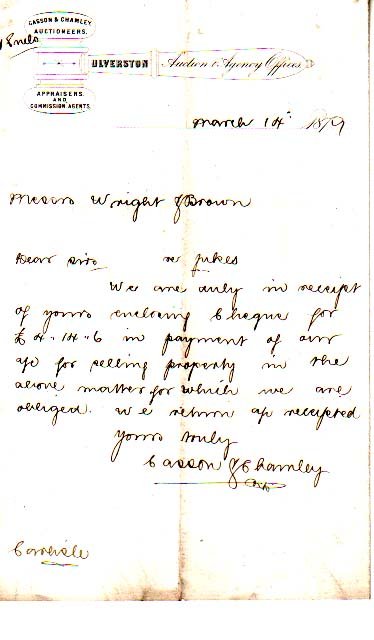 GASSON & CHAMLEY
AUCTIONEERS.
ULVERSTON
Auction & Agency Offices
APPRAISERS.
AND
COMMISSION AGENTS.
March 14th 1879
Messrs Wright & Brown
Dear Sirs
re Jukes
We are duly in receipt
of yours enclosing Cheque for
£4-14-6 in payment of our
a/c for selling property in the
above matter for which we are
obliged. We return a/c receipted
Yours truly
Casson & Chamley
Carlisle